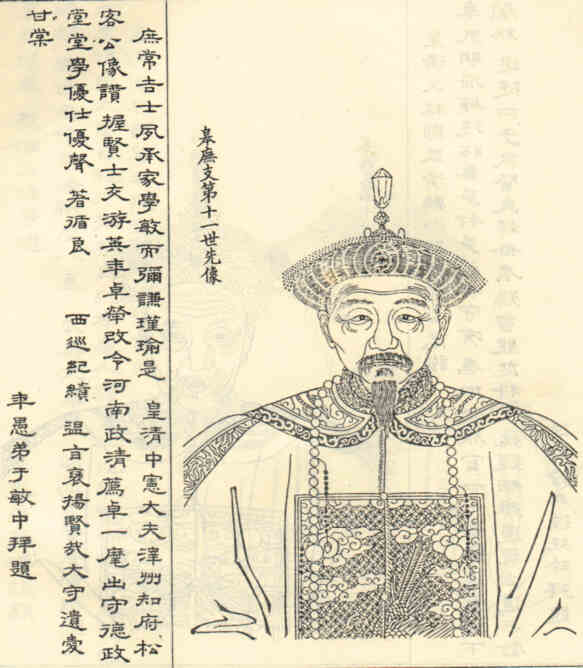 皋廡支第十一世先像
庶常吉士夙承家學敏而彌謙瑾瑜是 皇清中憲大夫澤州知府松
客公像讚 握賢士交游英年卓犖改令河南政清薦卓一麾出守德政
堂堂學優仕優聲 著循良 西巡紀績 溫言褒揚賢哉大守遺愛
甘棠
年愚弟于敏中拜題